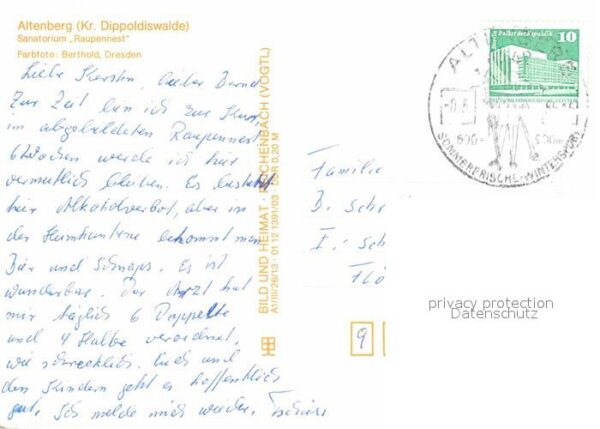 Altenberg (Kr. Dippoldiswalde)
Sanatorium „Raupennest"
Farbfoto: Berthold, Dresden
Liebe Kerstin, lieber Bernd
Zur Zeit bin ich zur Kur
im abgebildeten Raupennest
6 Wochen werde ich hier
vermutlich bleiben. Es besteht
hier Alkoholverbot, aber in
der Heimkantine bekommt man
Bier und Schnaps. Es ist
wunderbar. Der Arzt hat
mir täglich 6 Doppelte
und 4 Halbe verordnet,
wie schrecklich. Euch und
den Kindern geht es hoffentlich
gut. Ich melde mich wieder.
BILD UND HEIMAT · REICHENBACH (VOGTL)
A1/III/26/13 · 01 12 1391/03 · DDR 0,20 M
Palast der Republik
10
DDR
ALTENBERG
600-
SOMMERFRISCHE-WINTERSPORT
Familie
B. Sch
Flö
9
privacy protection
Datenschutz